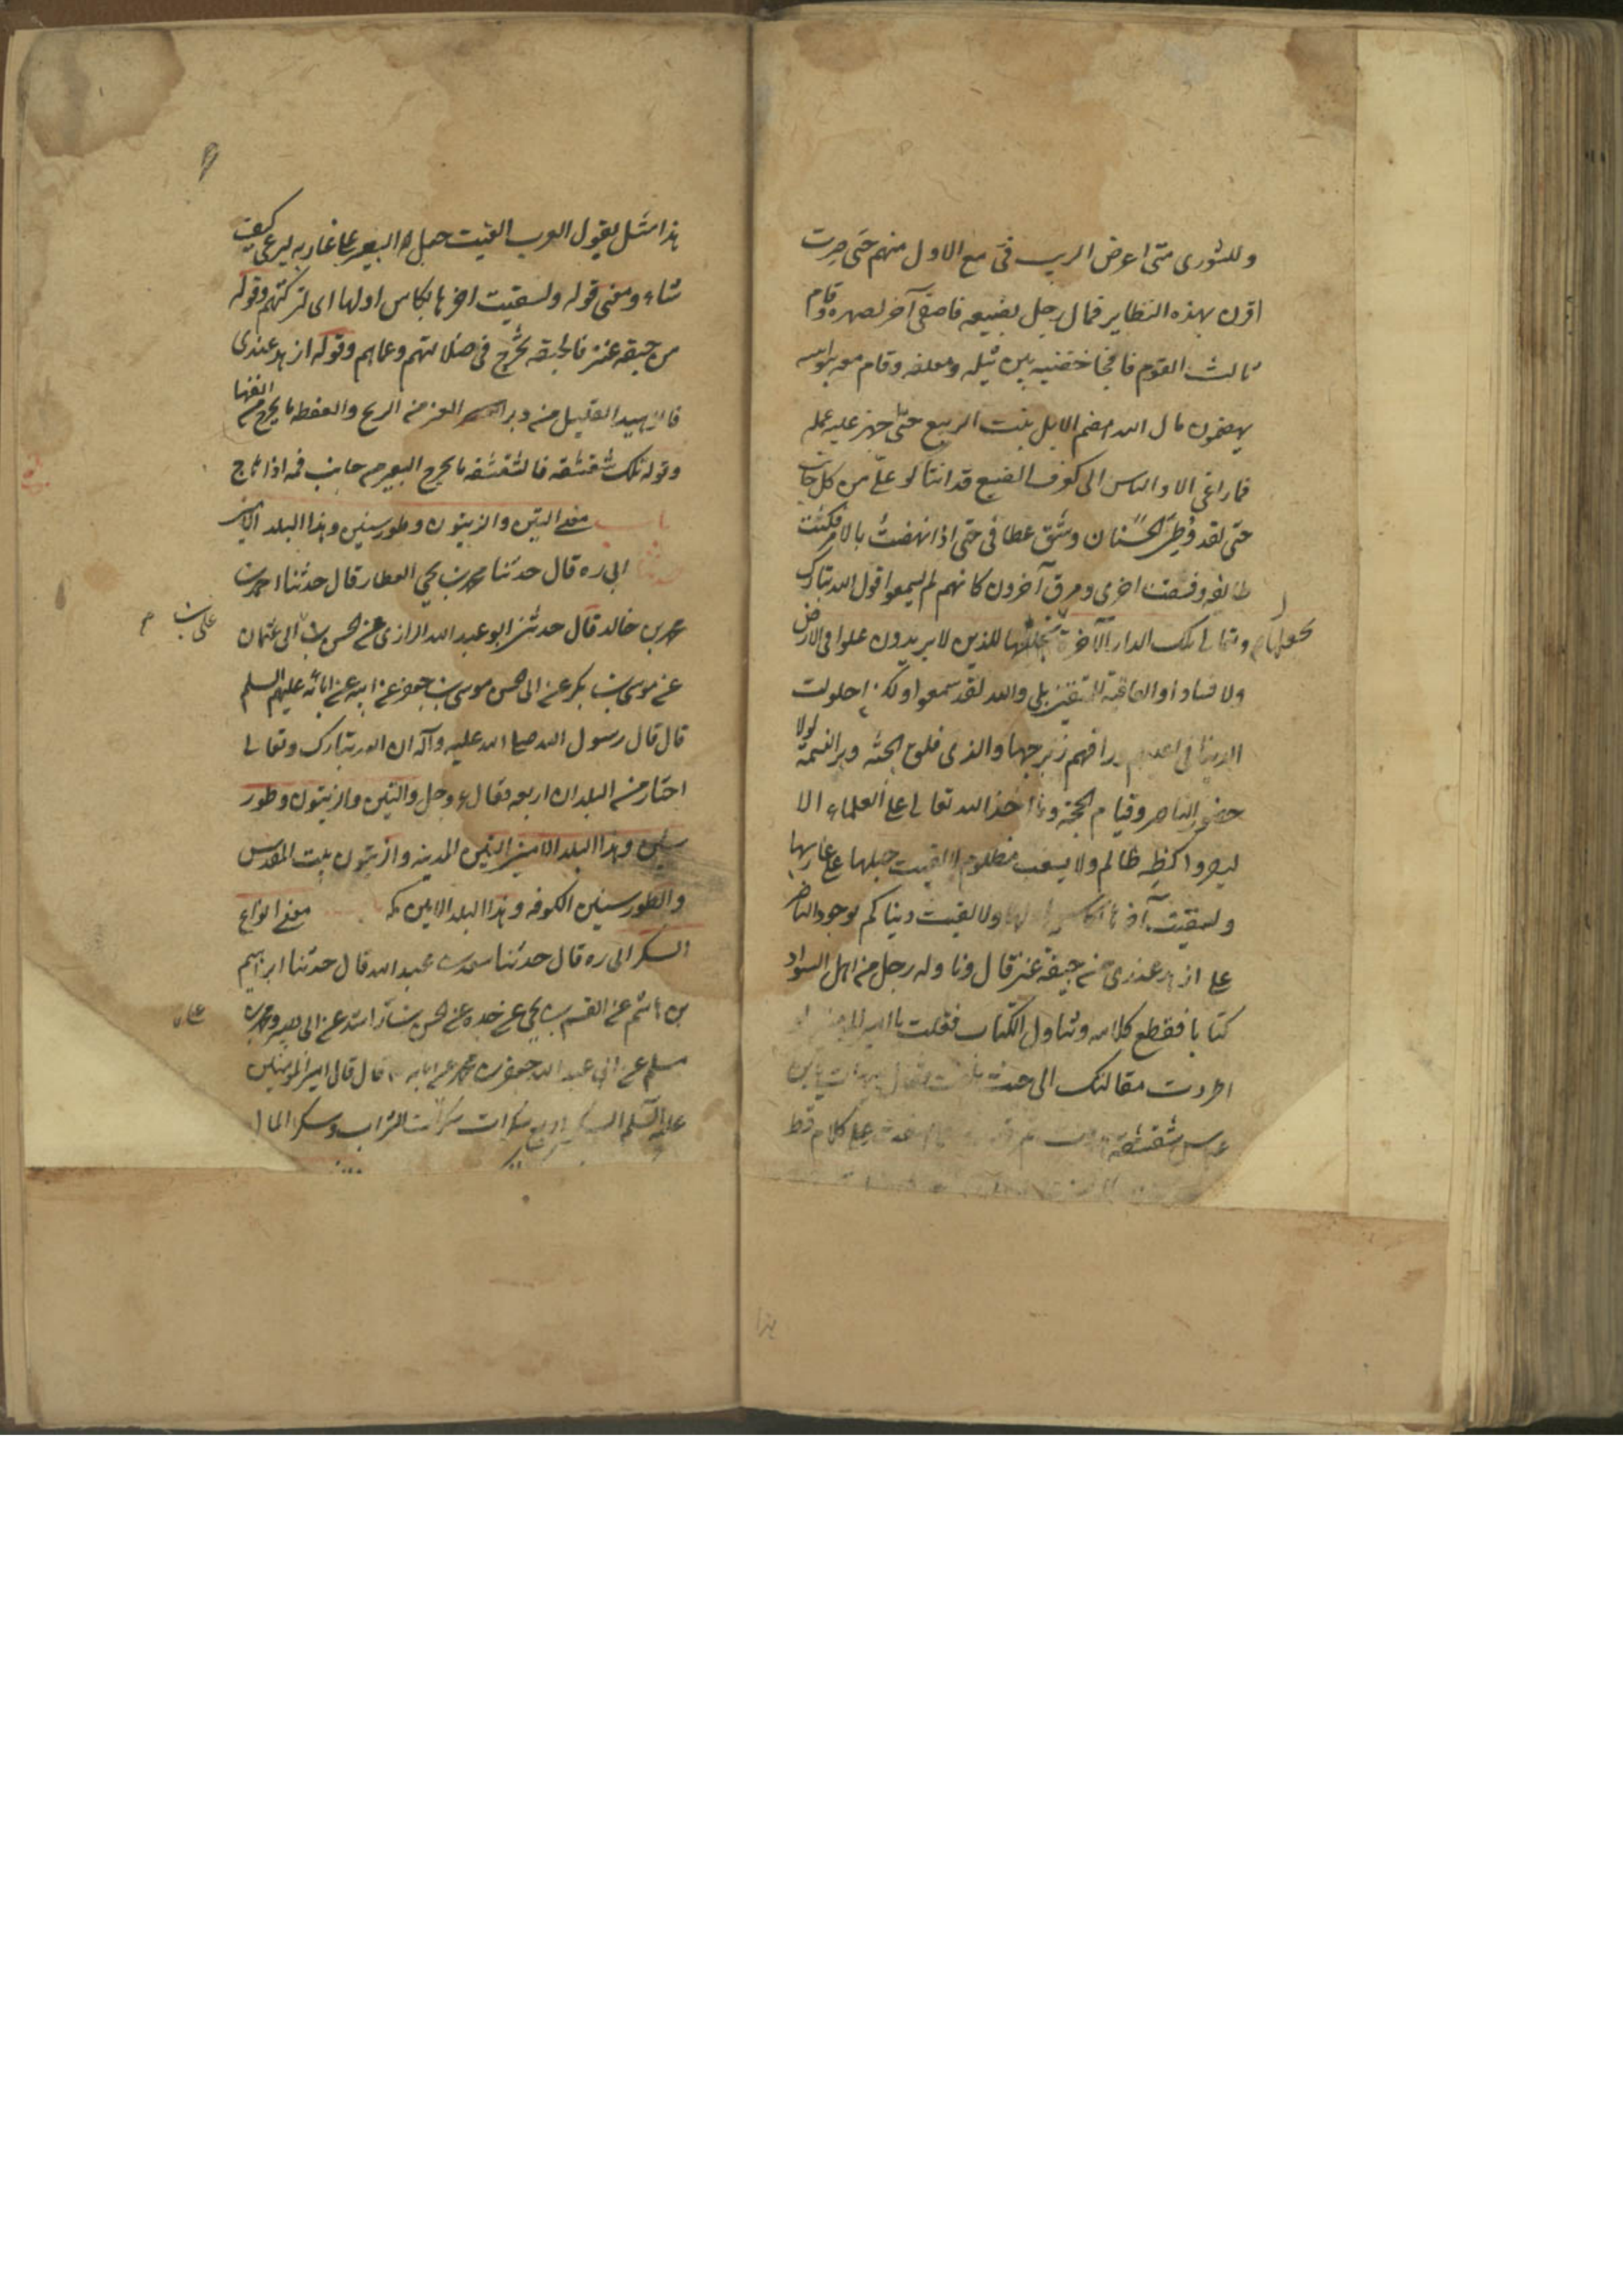 وللشورى متى اعترض الريب فيّ مع الاول منهم حتى صرت
اقرن بهذه النظاير فمال رجل بضبعه واصغى آخر لصهره وقام
ثالث القوم نافجا حضنيه بين نثيله ومعتلفه وقام معه بنو ابيه
يهضمون مال الله هضم الابل نبت الربيع حتى اجهز عليه عمله
فما راعنى الا والناس الى كعرف الضبع قد انثالوا علىّ من كل جانب
حتى لقد وُطِئ الحسنان وشق عطافى حتى اذا نهضت بالامر نكثت
طائفة وفسقت اخرى ومرق آخرون كانهم لم يسمعوا قول الله تبارك
وتعالى تلك الدار الآخرة نجعلها للذين لا يريدون علوا فى الارض
نجعلها
ولا فسادا والعاقبة للمتقين بلى والله لقد سمعوا ولكن احلولت
الدنيا فى اعينهم وراقهم زبرجها والذى فلق الحبّة وبرا النسمة لولا
حضور الناصر وقيام الحجة وما اخذ الله تعالى على العلماء الا
يقروا كظة ظالم ولا سغب مظلوم لالقيت حبلها على غاربها
ولسقيت آخرها بكاس اولها ولالفيت دنياكم
على ازهد عندى من حبقة عنز قال وناوله رجل من اهل السواد
كتابا فقطع كلامه وتناول الكتاب فقلت يا امير المومنين لو
اطردت مقالتك الى حيث بلغت فقال هيهات يا بن
عباس شقشقة هدرت ثم قرت على كلام قط
هذا
هذا مثل يقول العرب القيت حبل البعير على غاربه ليرعى كيف
شاء ومعنى قوله ولسقيت اخرها بكاس اولها اى لتركتهم وقوله
من حبقة عنز فالحبقة يخرج فى ضلالتهم وعماهم وقوله ازهد عندى
فالزهيد القليل من دبر العنز من الريح والعفطه ما يخرج من انفها
وقوله تلك شقشقة فالشقشقه ما يخرج البعير من جانب فمه اذا هاج
باب معنى التين والزيتون وطور سينين وهذا البلد الامين
حدثنا ابى ره قال حدثنا محمد بن يحيى العطار قال حدثنا احمد بن
محمد بن خالد قال حدثنى ابو عبد الله الرازى عن الحسن بن ابى عثمان
على بن
عن موسى بن بكر عن ابى الحسن موسى بن جعفر عن ابيه عن ابائه عليهم السلم
قال قال رسول الله صلى الله عليه وآله ان الله تبارك وتعالى
اختار من البلدان اربعه فقال عز وجل والتين والزيتون وطور
سينين وهذا البلد الامين التين المدينه والزيتون بيت المقدس
والطور سينين الكوفه وهذا البلد الامين مكه معنى انواع
السكر ابى ره قال حدثنا سعد بن عبد الله قال حدثنا ابراهيم
بن هاشم عن القسم بن يحيى عن جده عن الحسن بن راشد عن ابى بصير ومحمد بن
مسلم عن ابى عبد الله جعفر بن محمد عن ابائه قال قال امير المومنين
عليه السلم السكر اربع سكرات سكر الشراب وسكر المال